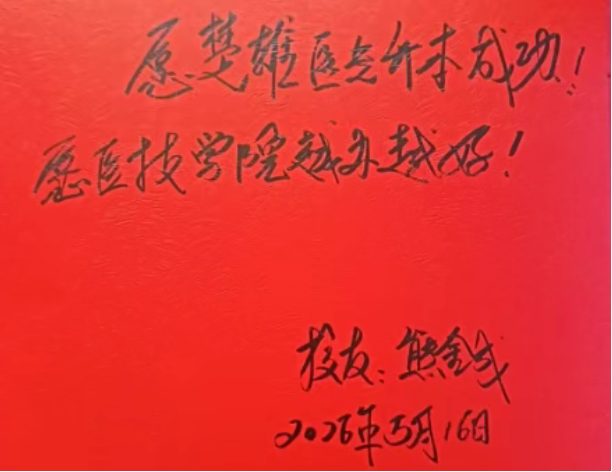 愿楚雄医专升本成功!
愿医技学院越办越好!
校友:熊金成
2026年5月16日